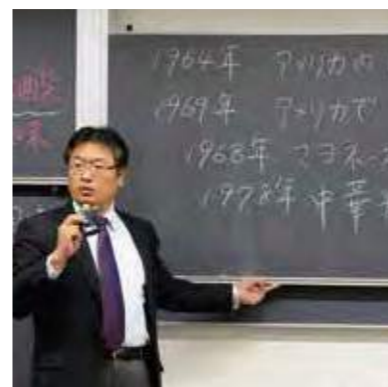 酸
味
1964年 アメリカの
1969年 アメリカで
1968年 マヨネー
1978年 中華